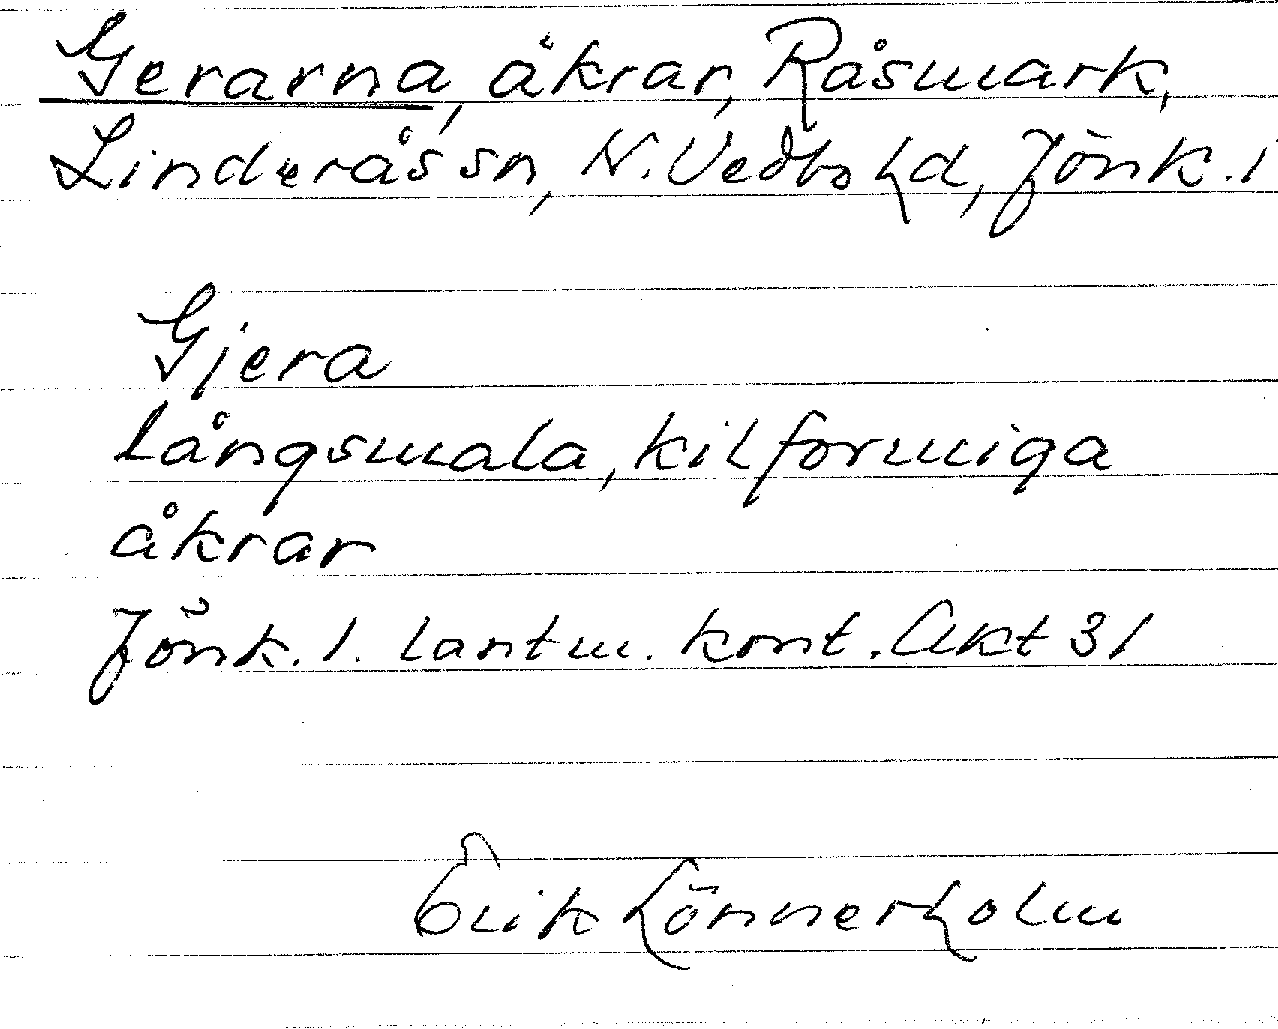 Gerarna, åkrar, Råsmark,
Linderås sn, N. Vedbo hd, Jönk. l
Gjera
långsmala, kilformiga
åkrar
Jönk. l. lantm. kont. Akt 31
Erik Lönnerholm